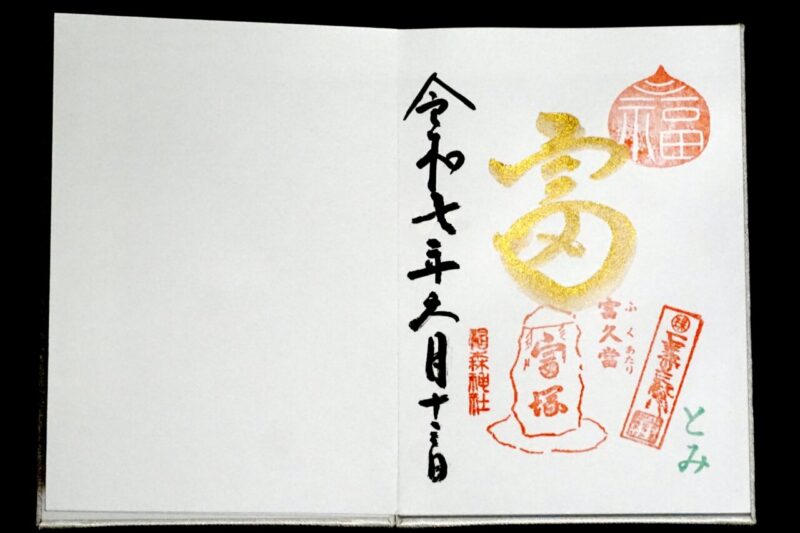 福
富
富久當
ふくあたり
富塚
とみ
令和七年九月十三日
椙森神社